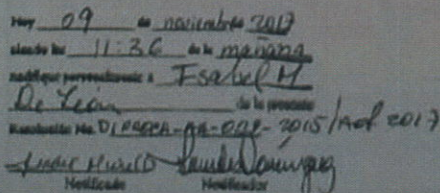 Hoy 09 de noviembre 2017
siendo las 11:36 de la mañana
notifique personalmente a Isabel M
De León de la presente
Resolución No. DIPROCA-AA-
Notificado Notificador